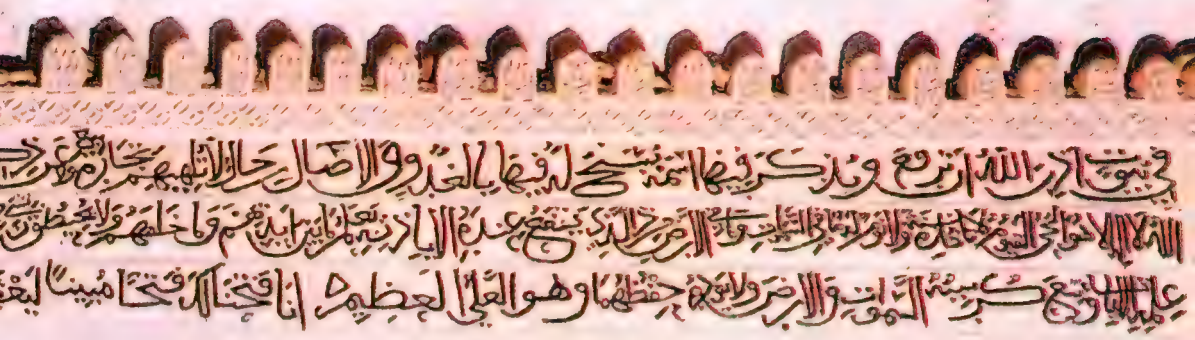 في بيوت اذن الله ان ترفع ويذكر فيها اسمه يسبح له فيها بالغدو والاصال رجال لا تلهيهم تجارة
الله لا اله الا هو الحي القيوم لا تاخذه سنة ولا نوم له ما في السموات الارض من ذا الذي يشفع عنده الا باذنه يعلم ما بين ايديهم وما خلفهم ولا يحيطون
علمه الا بما وسع كرسيه السموات والارض ولا يوده حفظهما وهو العلي العظيم انا فتحنا لك فتحا مبينا ليغفر